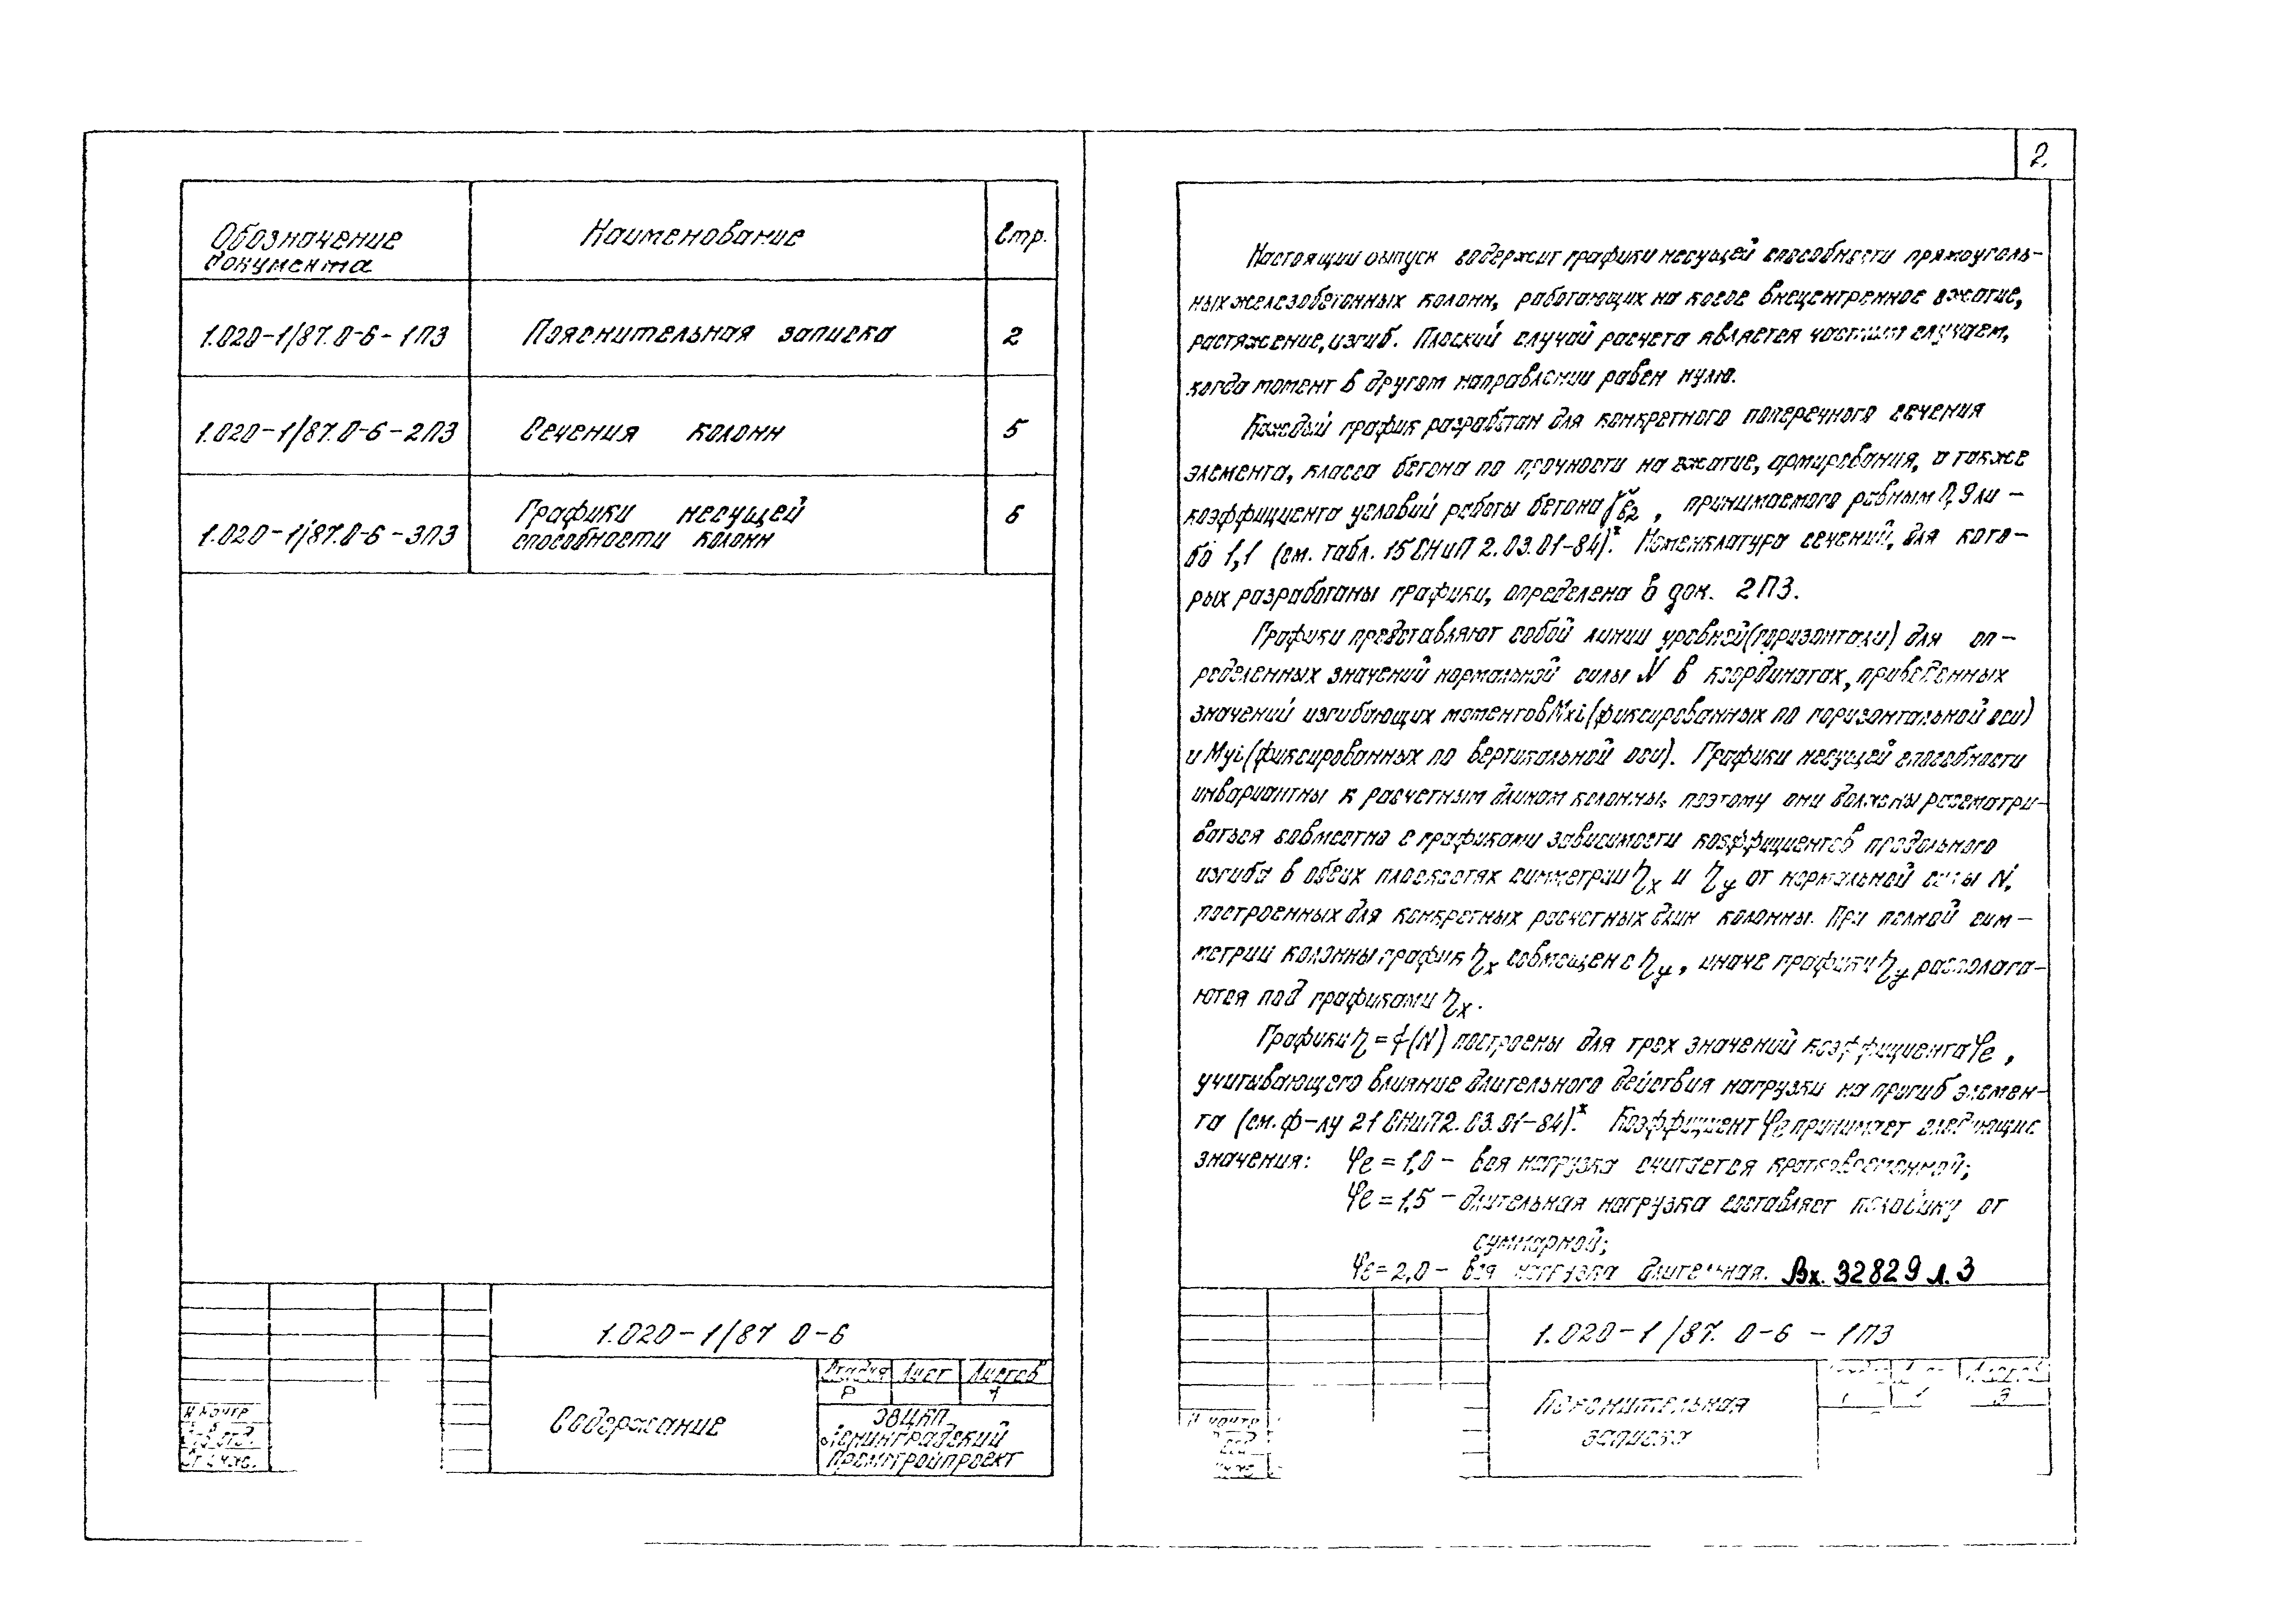 Обозначение
документа
Наименование
Стр.
1.020-1/87.0-6-1ПЗ
Пояснительная записка
2
1.020-1/87.0-6-2ПЗ
Сечения колонн
5
1.020-1/87.0-6-3ПЗ
Графики несущей
способности колонн
6
1.020-1/87 0-6
Стадия Лист Листов
Р 1
Содержание
Ленинградский
Промстройпроект
Н контр
2.
Настоящий выпуск содержит графики несущей способности прямоуголь-
ных железобетонных колонн, работающих на косое внецентренное сжатие,
растяжение, изгиб. Плоский случай расчета является частным случаем,
когда момент в другом направлении равен нулю.
Каждый график разработан для конкретного поперечного сечения
элемента, класса бетона по прочности на сжатие, армирования, а также
коэффициента условий работы бетона γb2, принимаемого равным 0,9 ли-
бо 1,1 (см. табл. 15 СНиП 2.03.01-84)*. Номенклатура сечений, для кото-
рых разработаны графики, определена в док. 2ПЗ.
Графики представляют собой линии уровней (горизонтали) для оп-
ределенных значений нормальной силы N в координатах, приведенных
значений изгибающих моментов Mxi (фиксированных по горизонтальной оси)
и Myi (фиксированных по вертикальной оси). Графики несущей способности
инвариантны к расчетным длинам колонны, поэтому они должны рассматри-
ваться совместно с графиками зависимости коэффициентов продольного
изгиба в обеих плоскостях симметрии ηx и ηy от нормальной силы N,
построенных для конкретных расчетных длин колонны. При полной сим-
метрии колонны график ηx совмещен с ηy, иначе графики ηy располага-
ются под графиками ηx.
Графики η = f(N) построены для трех значений коэффициента φe,
учитывающего влияние длительного действия нагрузки на прогиб элемен-
та (см. ф-лу 21 СНиП 2.03.01-84)*. Коэффициент φe принимает следующие
значения: φe = 1,0 - вся нагрузка считается кратковременной;
φe = 1,5 - длительная нагрузка составляет половину от
суммарной;
φe = 2,0 - вся нагрузка длительная. Вх. 32829 л. 3
1.020-1/87. 0-6 - 1ПЗ
Пояснительная
записка
3
Н контр